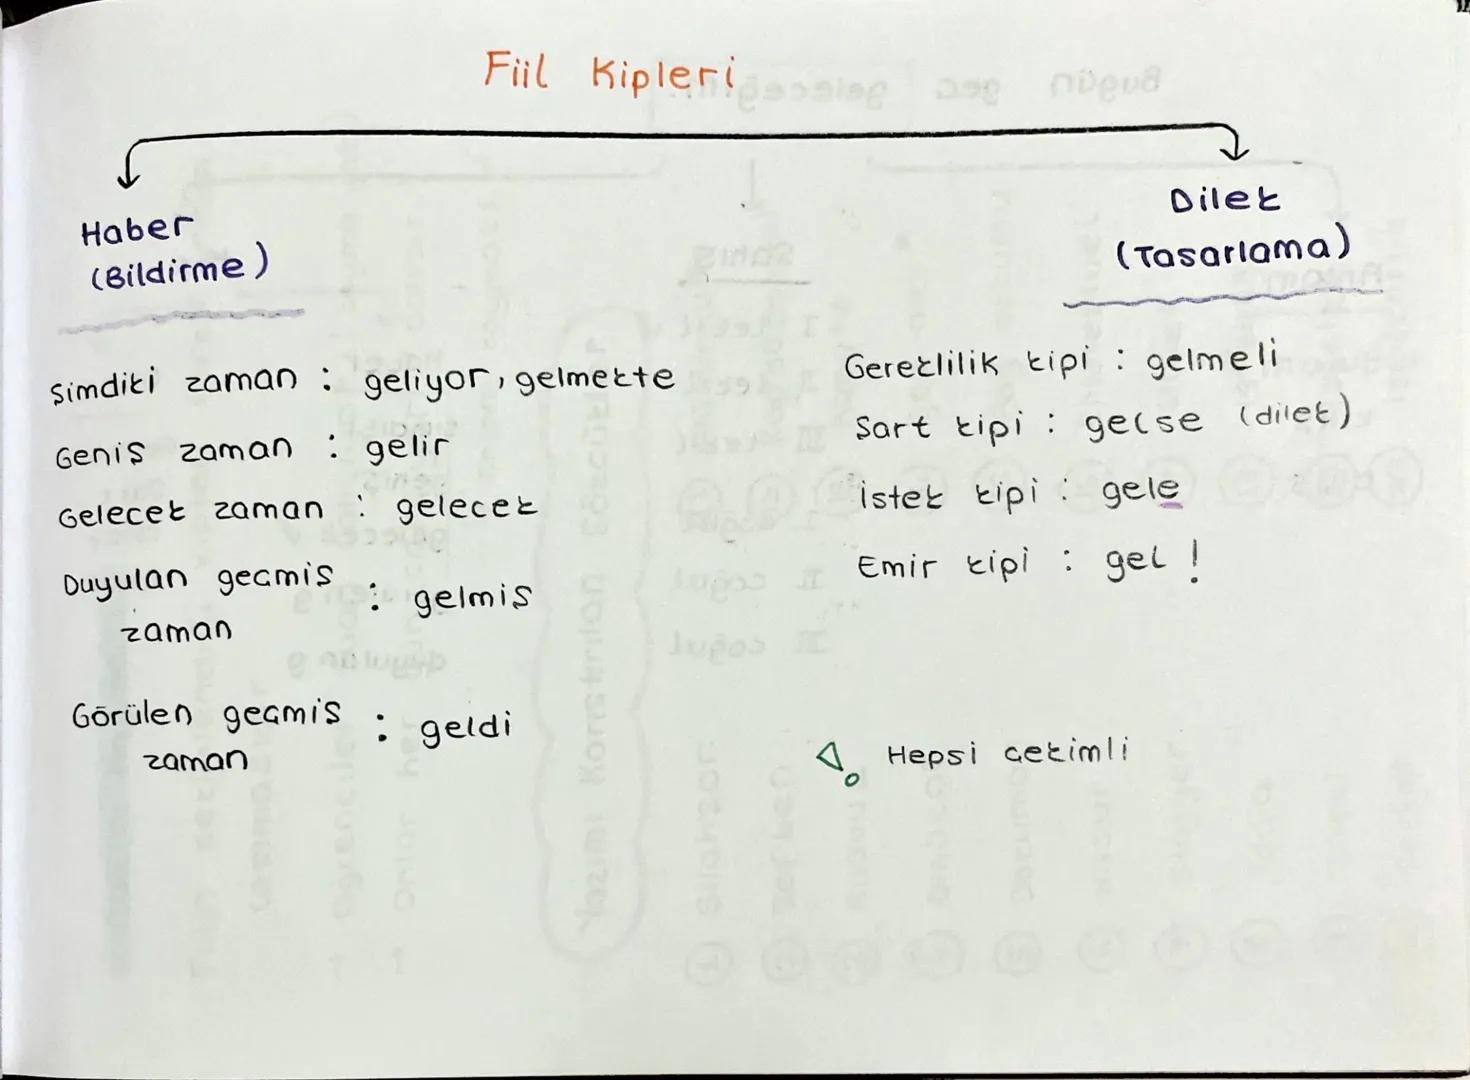 Fiil Kipleri
Haber
(Bildirme)
Şimdiki zaman : geliyor, gelmekte
Geniş zaman : gelir
Gelecek zaman : gelecek
Duyulan geçmiş
zaman : gelmiş
Görülen geçmiş
zaman : geldi
Dilek
(Tasarlama)
Gereklilik kipi : gelmeli
Şart kipi : gelse (dilek)
İstek kipi : gele
Emir kipi : gel !
Hepsi çekimli